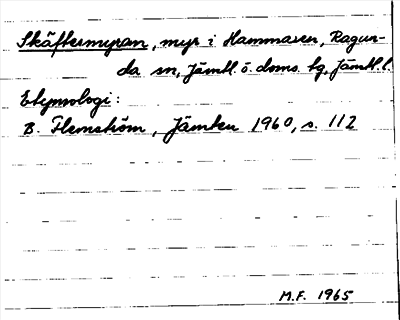 Skäftermyran, myr i Hammaren, Ragun-
da sn, Jämtl. ö. doms. tg, Jämtl. l.
Etymologi:
B. Flemström, Jämten 1960, s. 112
M.F. 1965